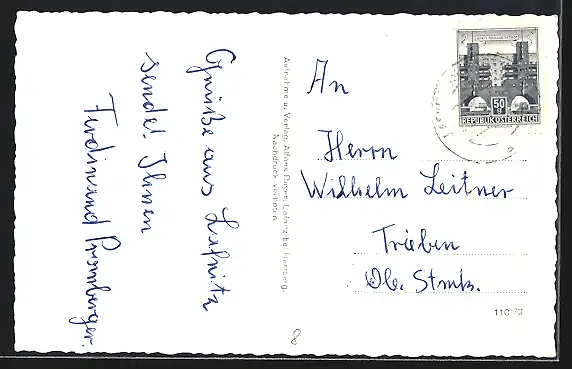 Grüße aus Lafnitz
sendet Ihnen
Ferdinand Promberger.
Aufnahme u. Verlag: Alfons Rieger, Lafnitz bei Hartberg.
Nachdruck verboten
An
Herrn
Wilhelm Leitner
Trieben
Ob. Stmk.
110 72
8
50
REPUBLIK ÖSTERREICH